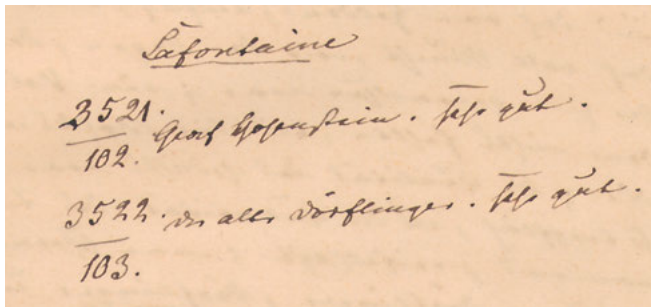 Lafontaine
3521. Graf Hohenstein. sehr gut.
102.
3522. der alte Dörflinger. sehr gut.
103.